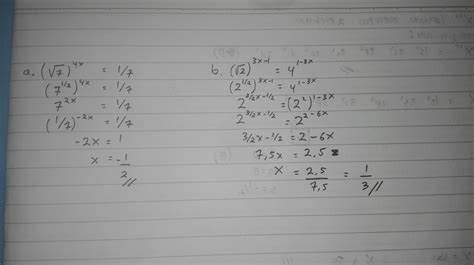 a. (√7)^4x = 1/7
(7^1/2)^4x = 1/7
7^2x = 1/7
(1/7)^-2x = 1/7
-2x = 1
x = -1/2 //
b. (√2)^3x-1 = 4^1-3x
(2^1/2)^3x-1 = 4^1-3x
2^3/2x-1/2 = (2²)^1-3x
2^3/2x-1/2 = 2^2-6x
3/2x-1/2 = 2-6x
7,5x = 2,5
x = 2,5/7,5 = 1/3 //